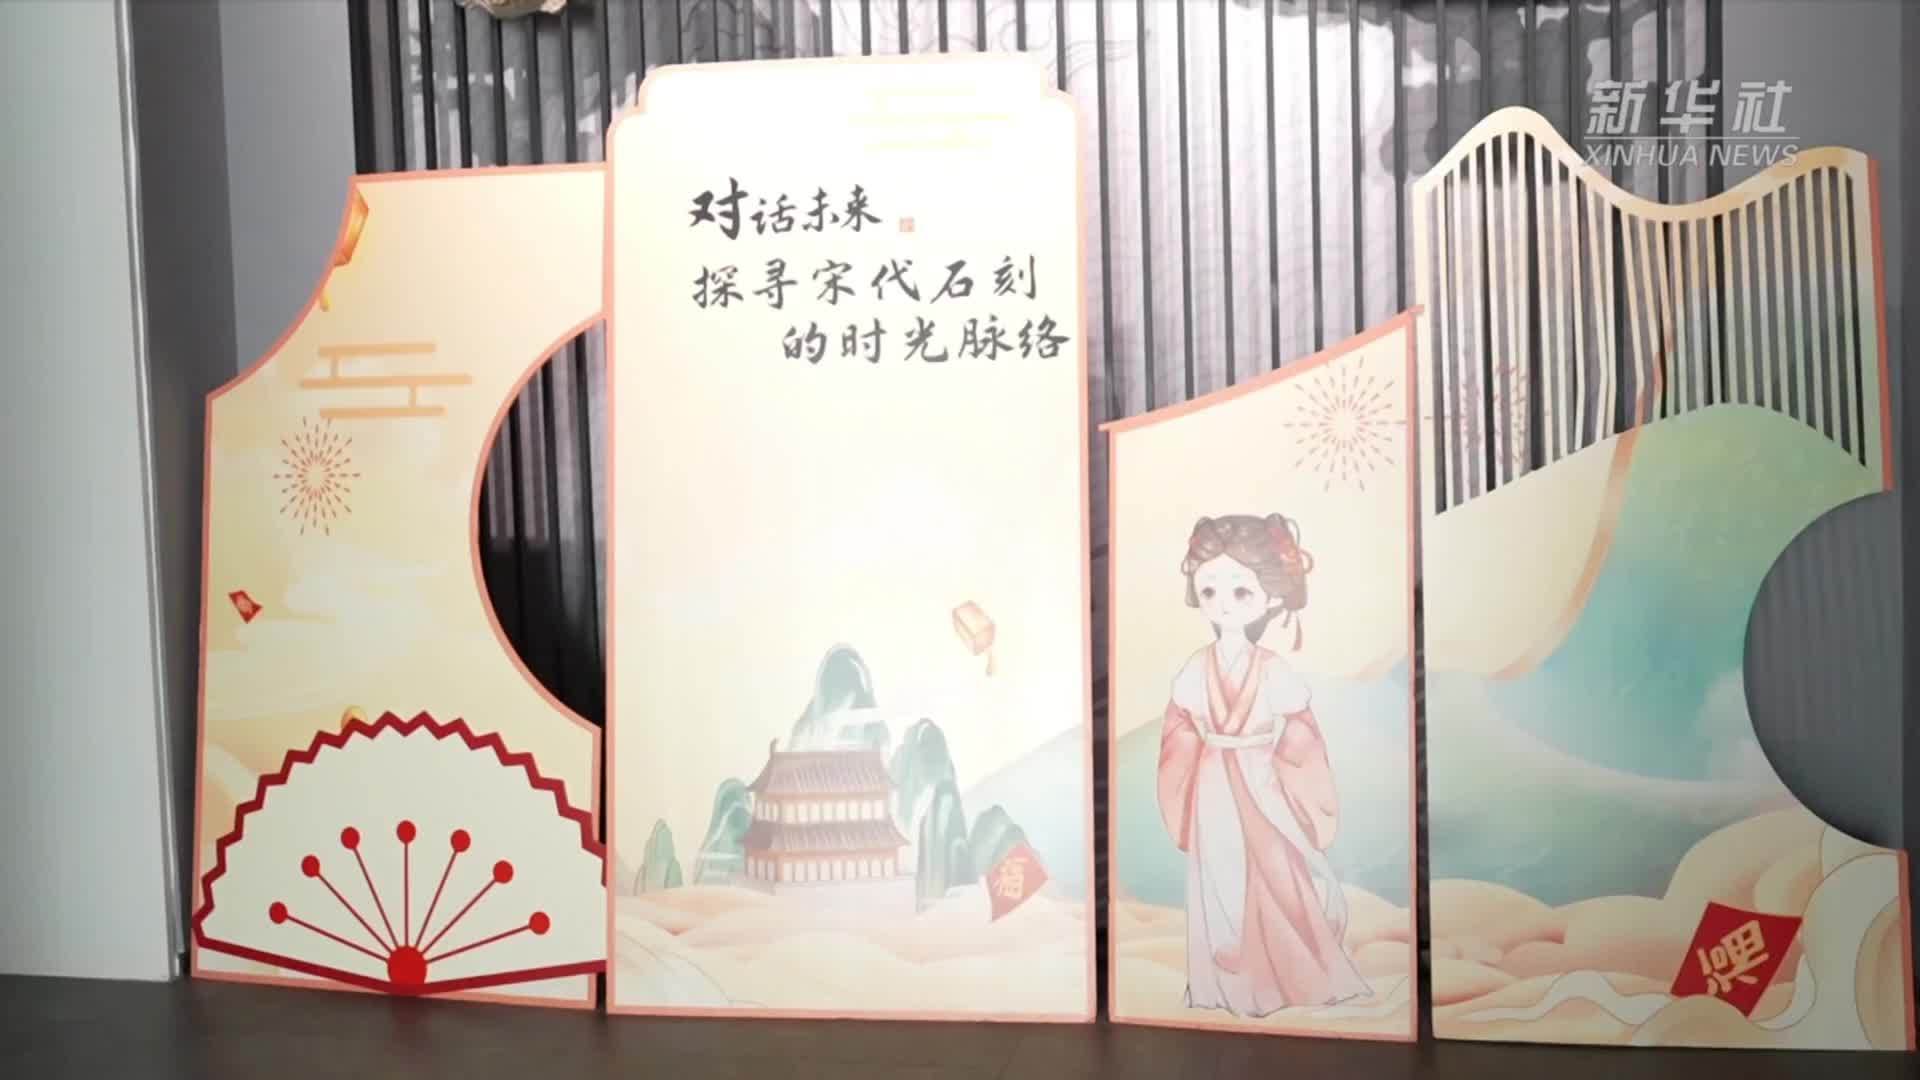 新华社
XINHUA NEWS
对话未来
探寻宋代石刻
的时光脉络
福
福